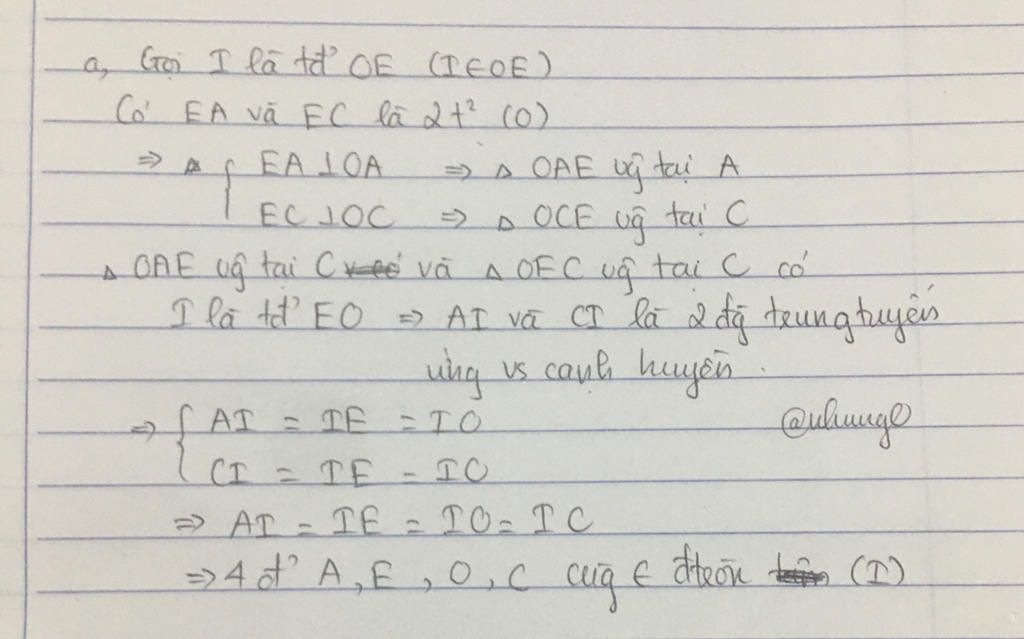 a, Gọi I là tđ' OE (I∈OE)
Có EA và EC là 2t² (O)
=> { EA⊥OA => △ OAE vg̃ tại A
EC⊥OC => △ OCE vg̃ tại C
△ OAE vg̃ tại C và △ OEC vg̃ tại C có
I là tđ' EO => AI và CI là 2 đg̃ trung tuyến
ứng vs cạnh huyền.
=> { AI = IE = IO
@nhungo
CI = IE = IO
=> AI = IE = IO = IC
=> 4 đ' A, E, O, C cùg ∈ đtròn (I)